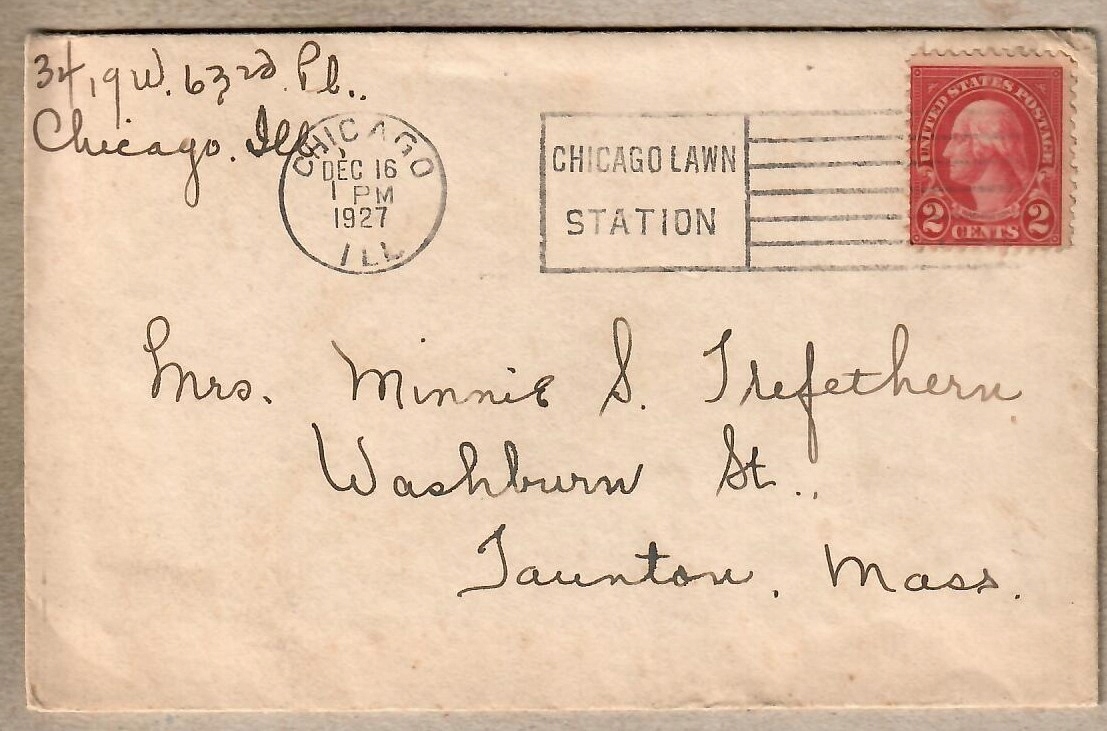 3419 W. 63rd. Pl..
Chicago. Ill.
CHICAGO
DEC 16
1 PM
1927
ILL
CHICAGO LAWN
STATION
UNITED STATES POSTAGE
2 CENTS 2
Mrs. Minnie S. Trefethern
Washburn St.,
Taunton, Mass.